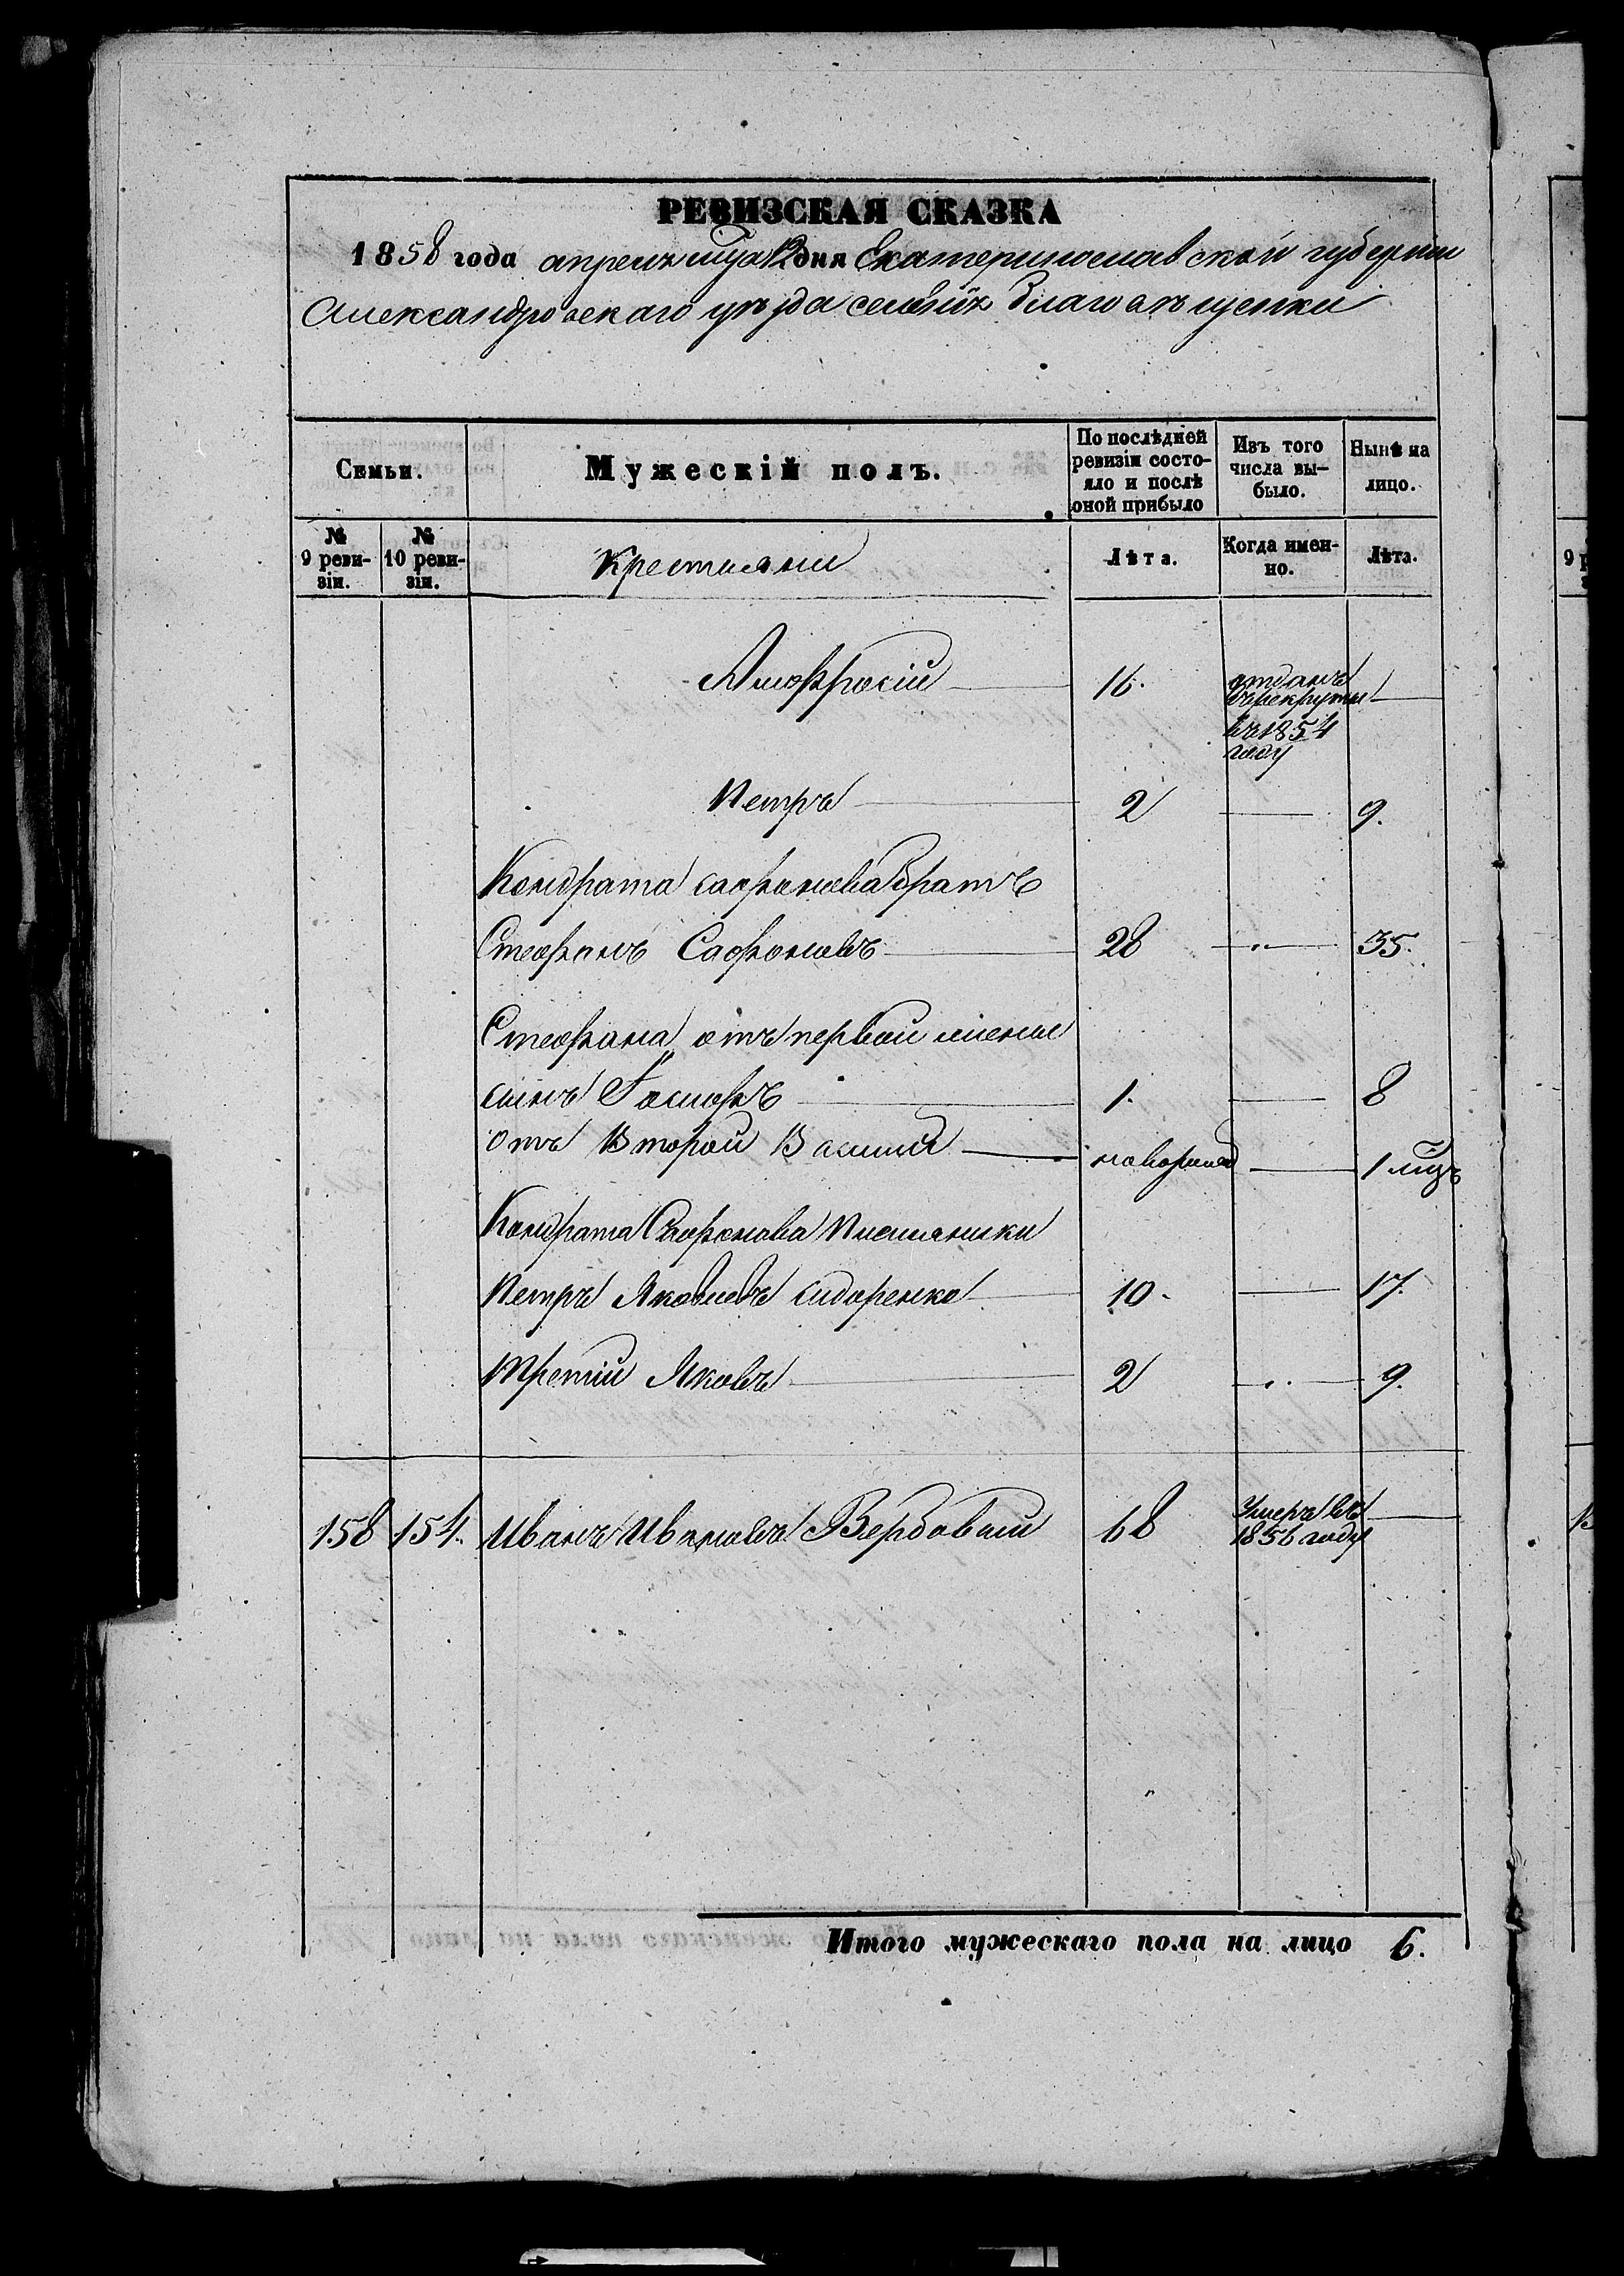 РЕВИЗСКАЯ СКАЗКА
1858 года апреля мца 12 дня Екатеринославской губерніи
Александровскаго уѣзда Благовѣщенки
Семьи.
Мужескій полъ.
По послѣдней ревизіи состо-
яло и послѣ
оной прибыло
Изъ того
числа вы-
было.
Нынѣ на
лицо.
№
9 реви-
зіи.
№
10 реви-
зіи.
Крестьяни
Лѣта.
Когда имен-
но.
Лѣта.
Амфросій 16. отданъ
въ рекруты
въ 1854
году
Петръ 2 9.
Кондрата Сафонова братъ
Стефанъ Сафоновъ 28 35.
Стефана отъ первой жены
сынъ 1. 8
отъ Второй Василій новорожд 1 мцъ
Кондрата Сафонова Племяники
Петръ Яковлевъ Сидоренко 10. 17.
Третій Яковъ 2 9.
158 154. Иванъ Ивановъ Вербовый 68 Умеръ въ
1856 году
Итого мужескаго пола на лицо 6.
9